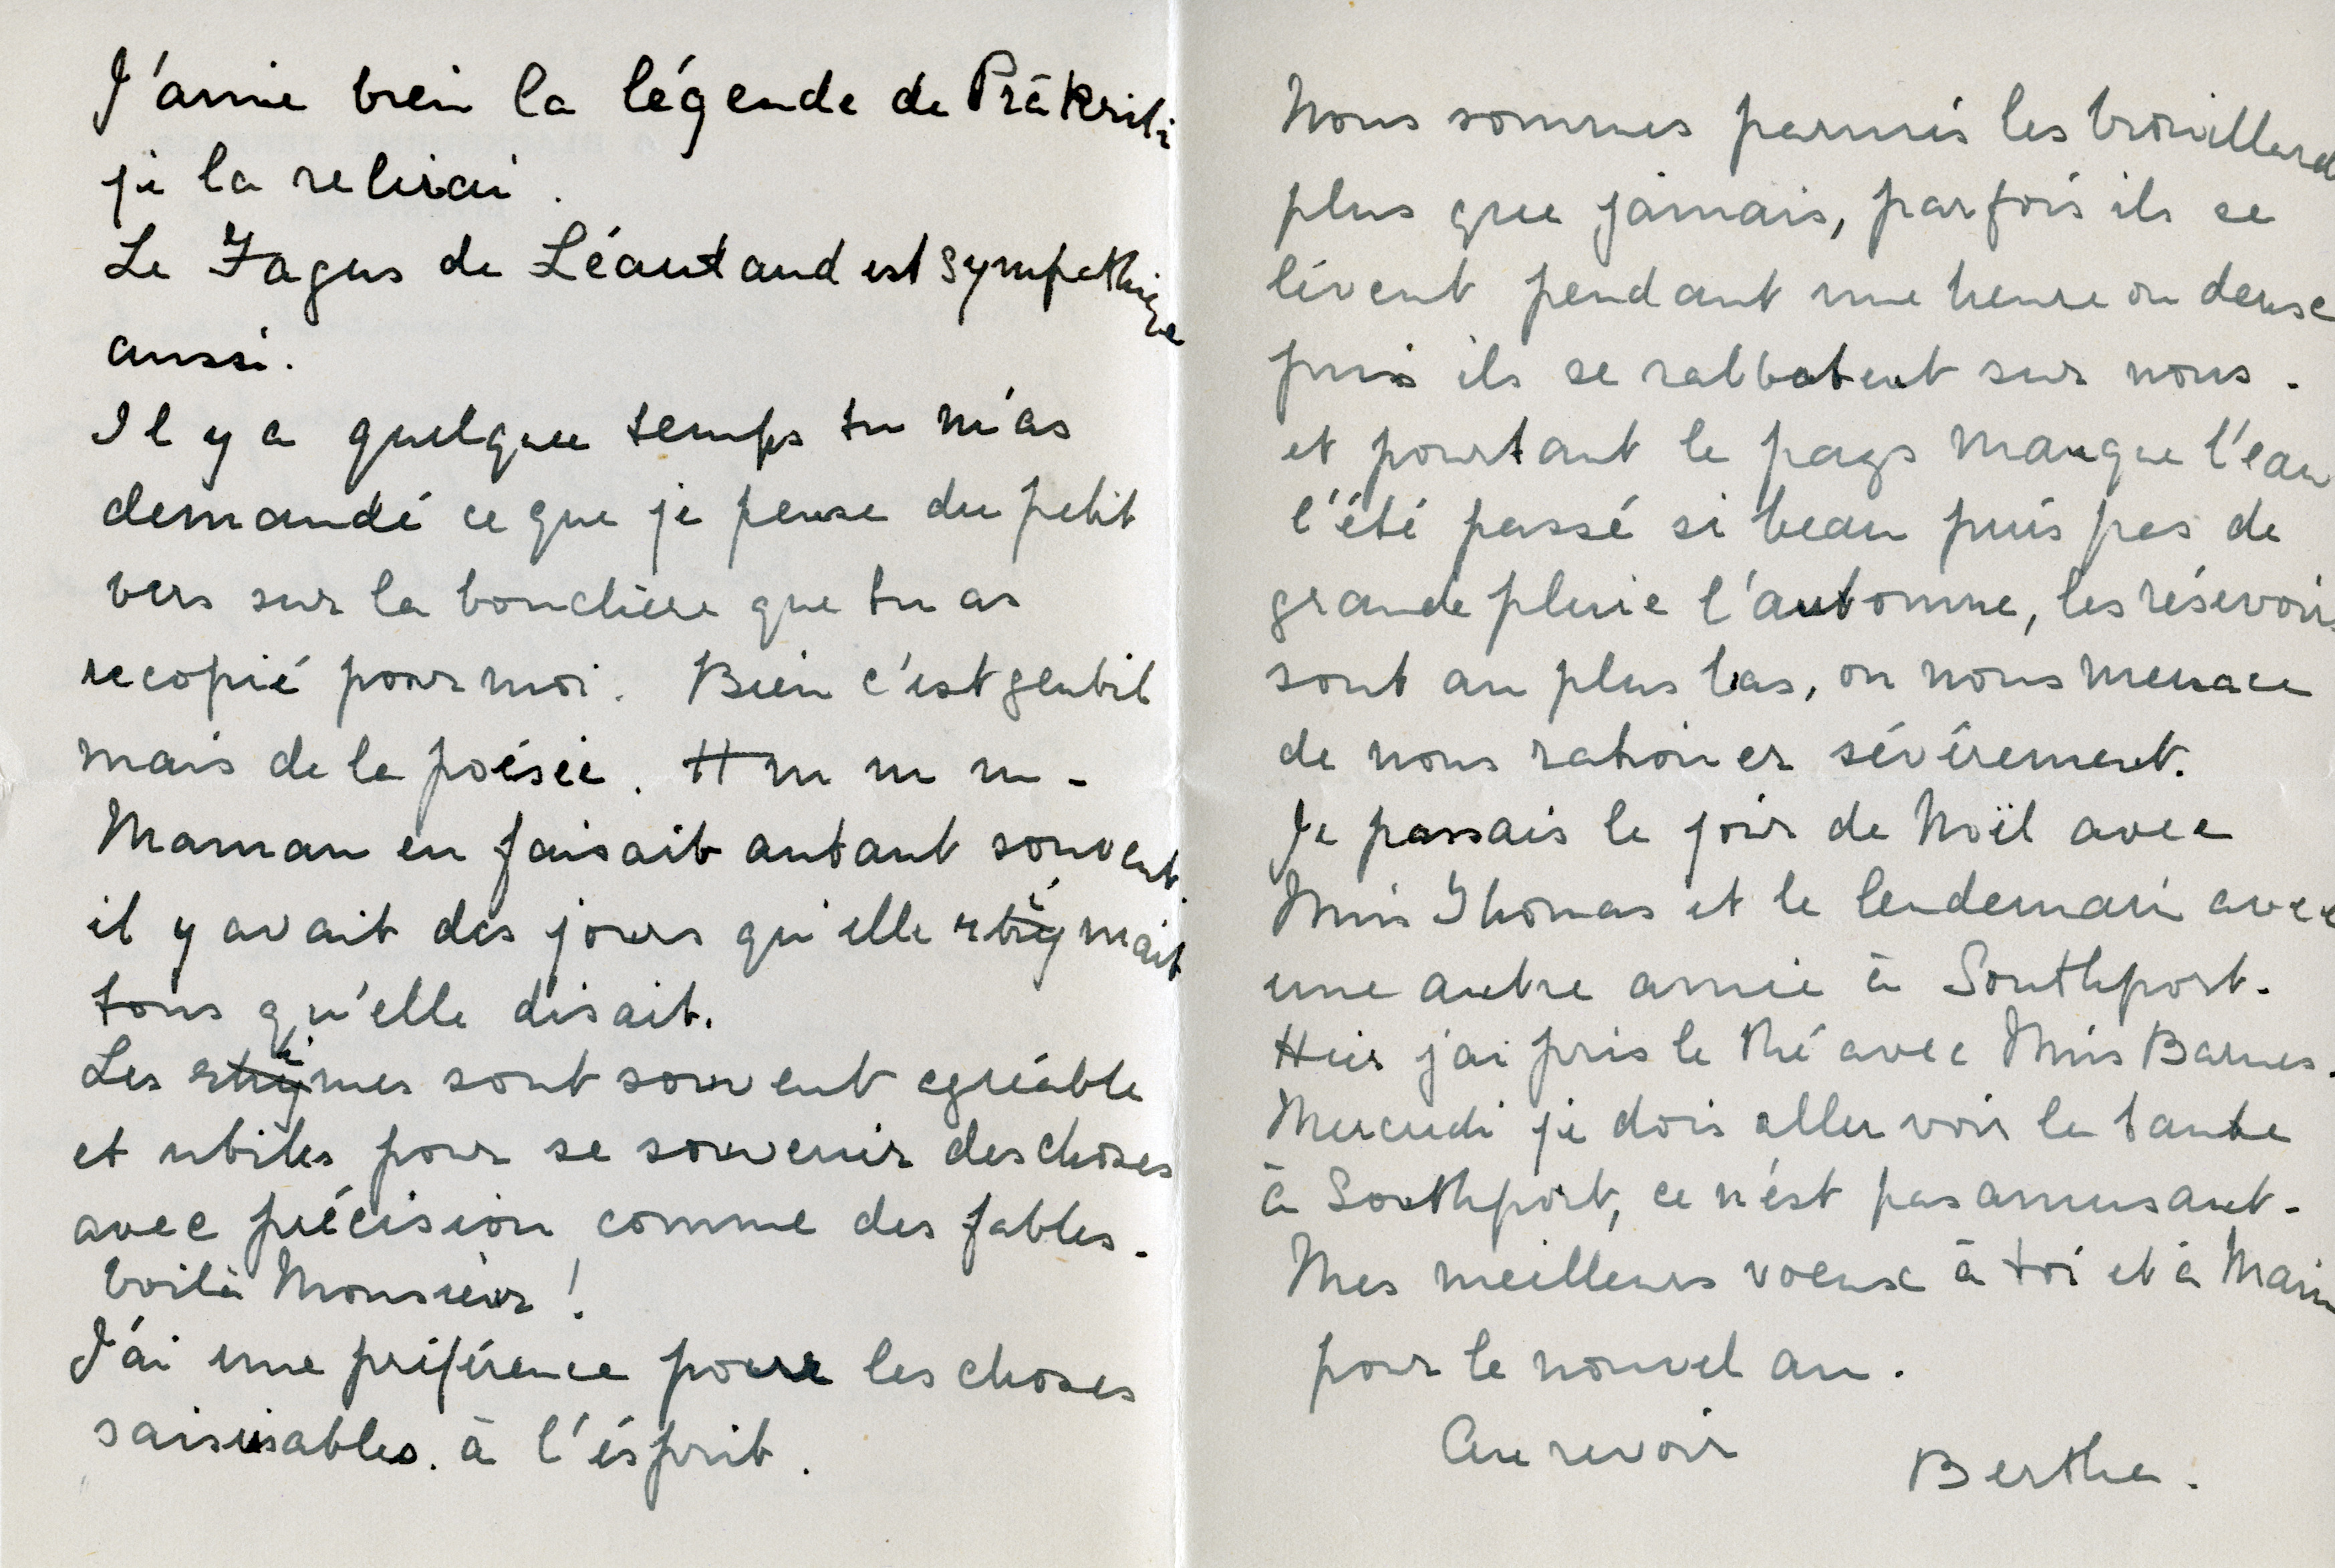 J'aime bien la légende de Prâkriti
je la relirai.
Le Fagus de Léautaud est sympathique
aussi.
Il y a quelque temps tu m'as
demandé ce que je pense du petit
vers sur la bouchère que tu as
recopié pour moi. Bien c'est gentil
mais de la poésie. Hm m m -
Maman en faisait autant souvent
il y avait des jours qu'elle rimait
tous qu'elle disait.
Les rimes sont souvent agréable
et utiles pour se souvenir des choses
avec précision comme des fables.
Voilà Monsieur !
J'ai une préférence pour les choses
saisisables à l'ésprit.
Nous sommes parmis les brouillard
plus que jamais, parfois ils se
lévent pendant une heure ou deux
puis ils se rabbatent sur nous.
et pourtant le pays manque l'eau
l'été passé si beau puis pas de
grande pluie l'automne, les résevoirs
sont au plus bas, on nous menace
de nous rationer sévérement.
Je passais le jour de Noël avec
Miss Thomas et le lendemain avec
une autre amie à Southport.
Hier j'ai pris le thé avec Miss Barnes.
Mercredi je dois aller voir la tante
à Southport, ce n'est pas amusant.
Mes meilleurs voeux à toi et à
pour le nouvel an.
Au revoir
Bertha.